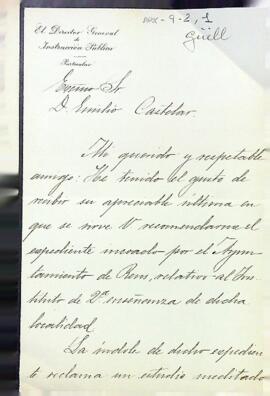 El Director General
de
Instrucción Pública
Particular
9-2,1
Güell
Excmo Sr
D. Emilio Castelar.
Mi querido y respetable
amigo: He tenido el gusto de
recibir su apreciable última en
que se sirve V recomendarme el
expediente incoado por el Ayun-
tamiento de Reus, relativo al Ins-
tituto de 2ª enseñanza de dicha
localidad.
La índole de dicho expedien
te reclama un estudio meditado